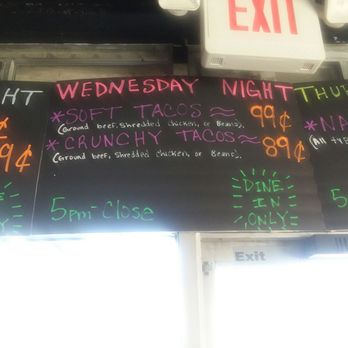 EXIT
HT
WEDNESDAY NIGHT
THU
*SOFT TACOS ≈ 99¢
(Ground beef, Shredded Chicken, or Beans).
*CRUNCHY TACOS ≈ 89¢
(Ground beef, Shredded Chicken, or Beans).
*NA
9¢
5pm-Close
DINE
IN
ONLY
5
Exit